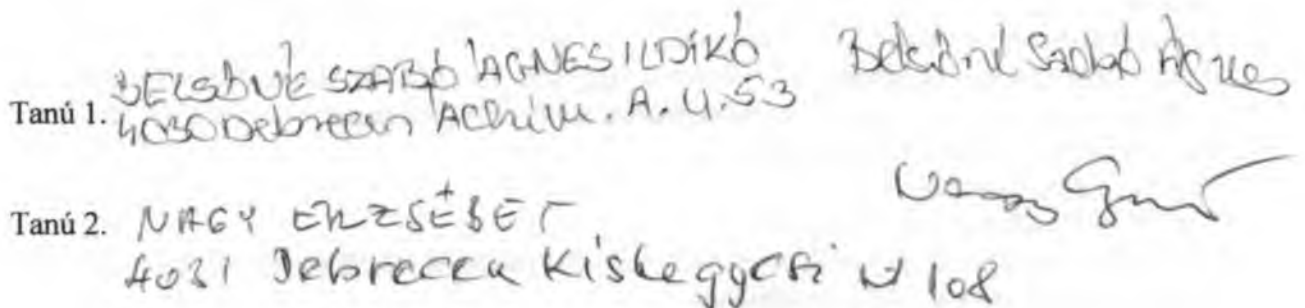 Tanú 1. BELSŐNÉ SZABÓ ÁGNES ILDIKÓ Belsőné Szabó Ágnes
4030 Debrecen Achim. A. u. 53
Tanú 2. NAGY ERZSÉBET
4031 Debrecen Kishegyesi u 108